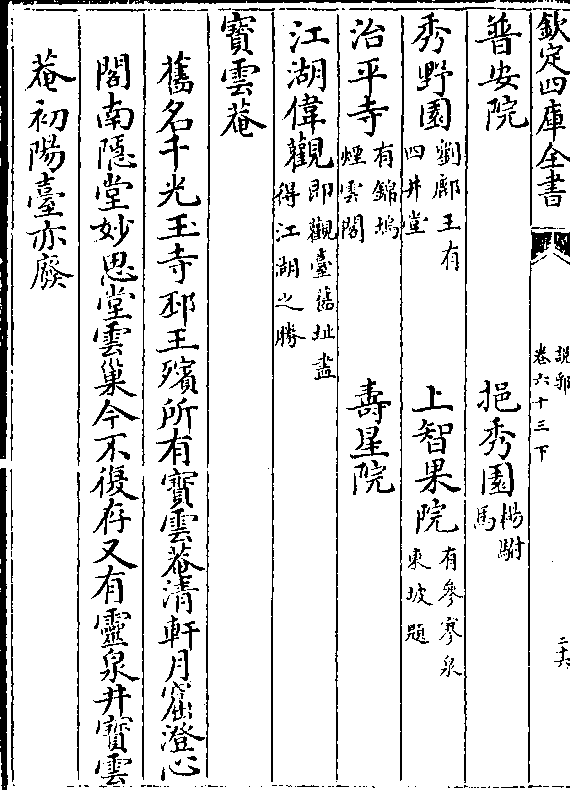 欽定四庫全書
説郛
卷六十三下
二十六
普安院
挹秀園楊駙
馬
秀野園劉鄜王有
四井堂
上智果院有參寥泉
東坡題
治平寺有錦塢
煙雲閣
壽星院
江湖偉觀即觀臺舊址盡
得江湖之勝
寶雲菴
舊名千光王寺邳王殯所有寶雲菴清軒月窟澄心
閣南隱堂妙思堂雲巢今不復存又有靈泉井寶雲
菴初陽臺亦廢